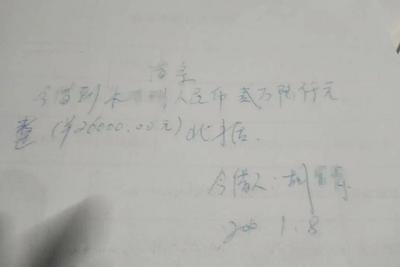 借条
今借到朱 人民币贰万陆仟元
整.(¥26000.00元)此据.
今借人:胡
200 1.8